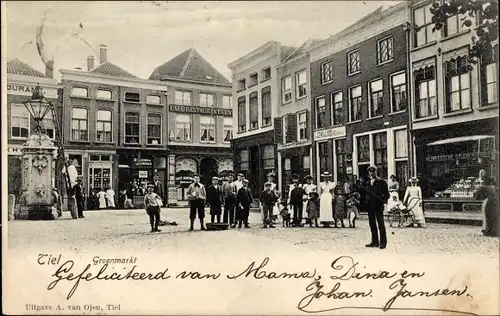 CAFÉ RESTAURANT
Tiel
Groenmarkt
Gefeliciteerd van Mama, Dina en
Johan. Jansen.
Uitgave A. van Ojen, Tiel